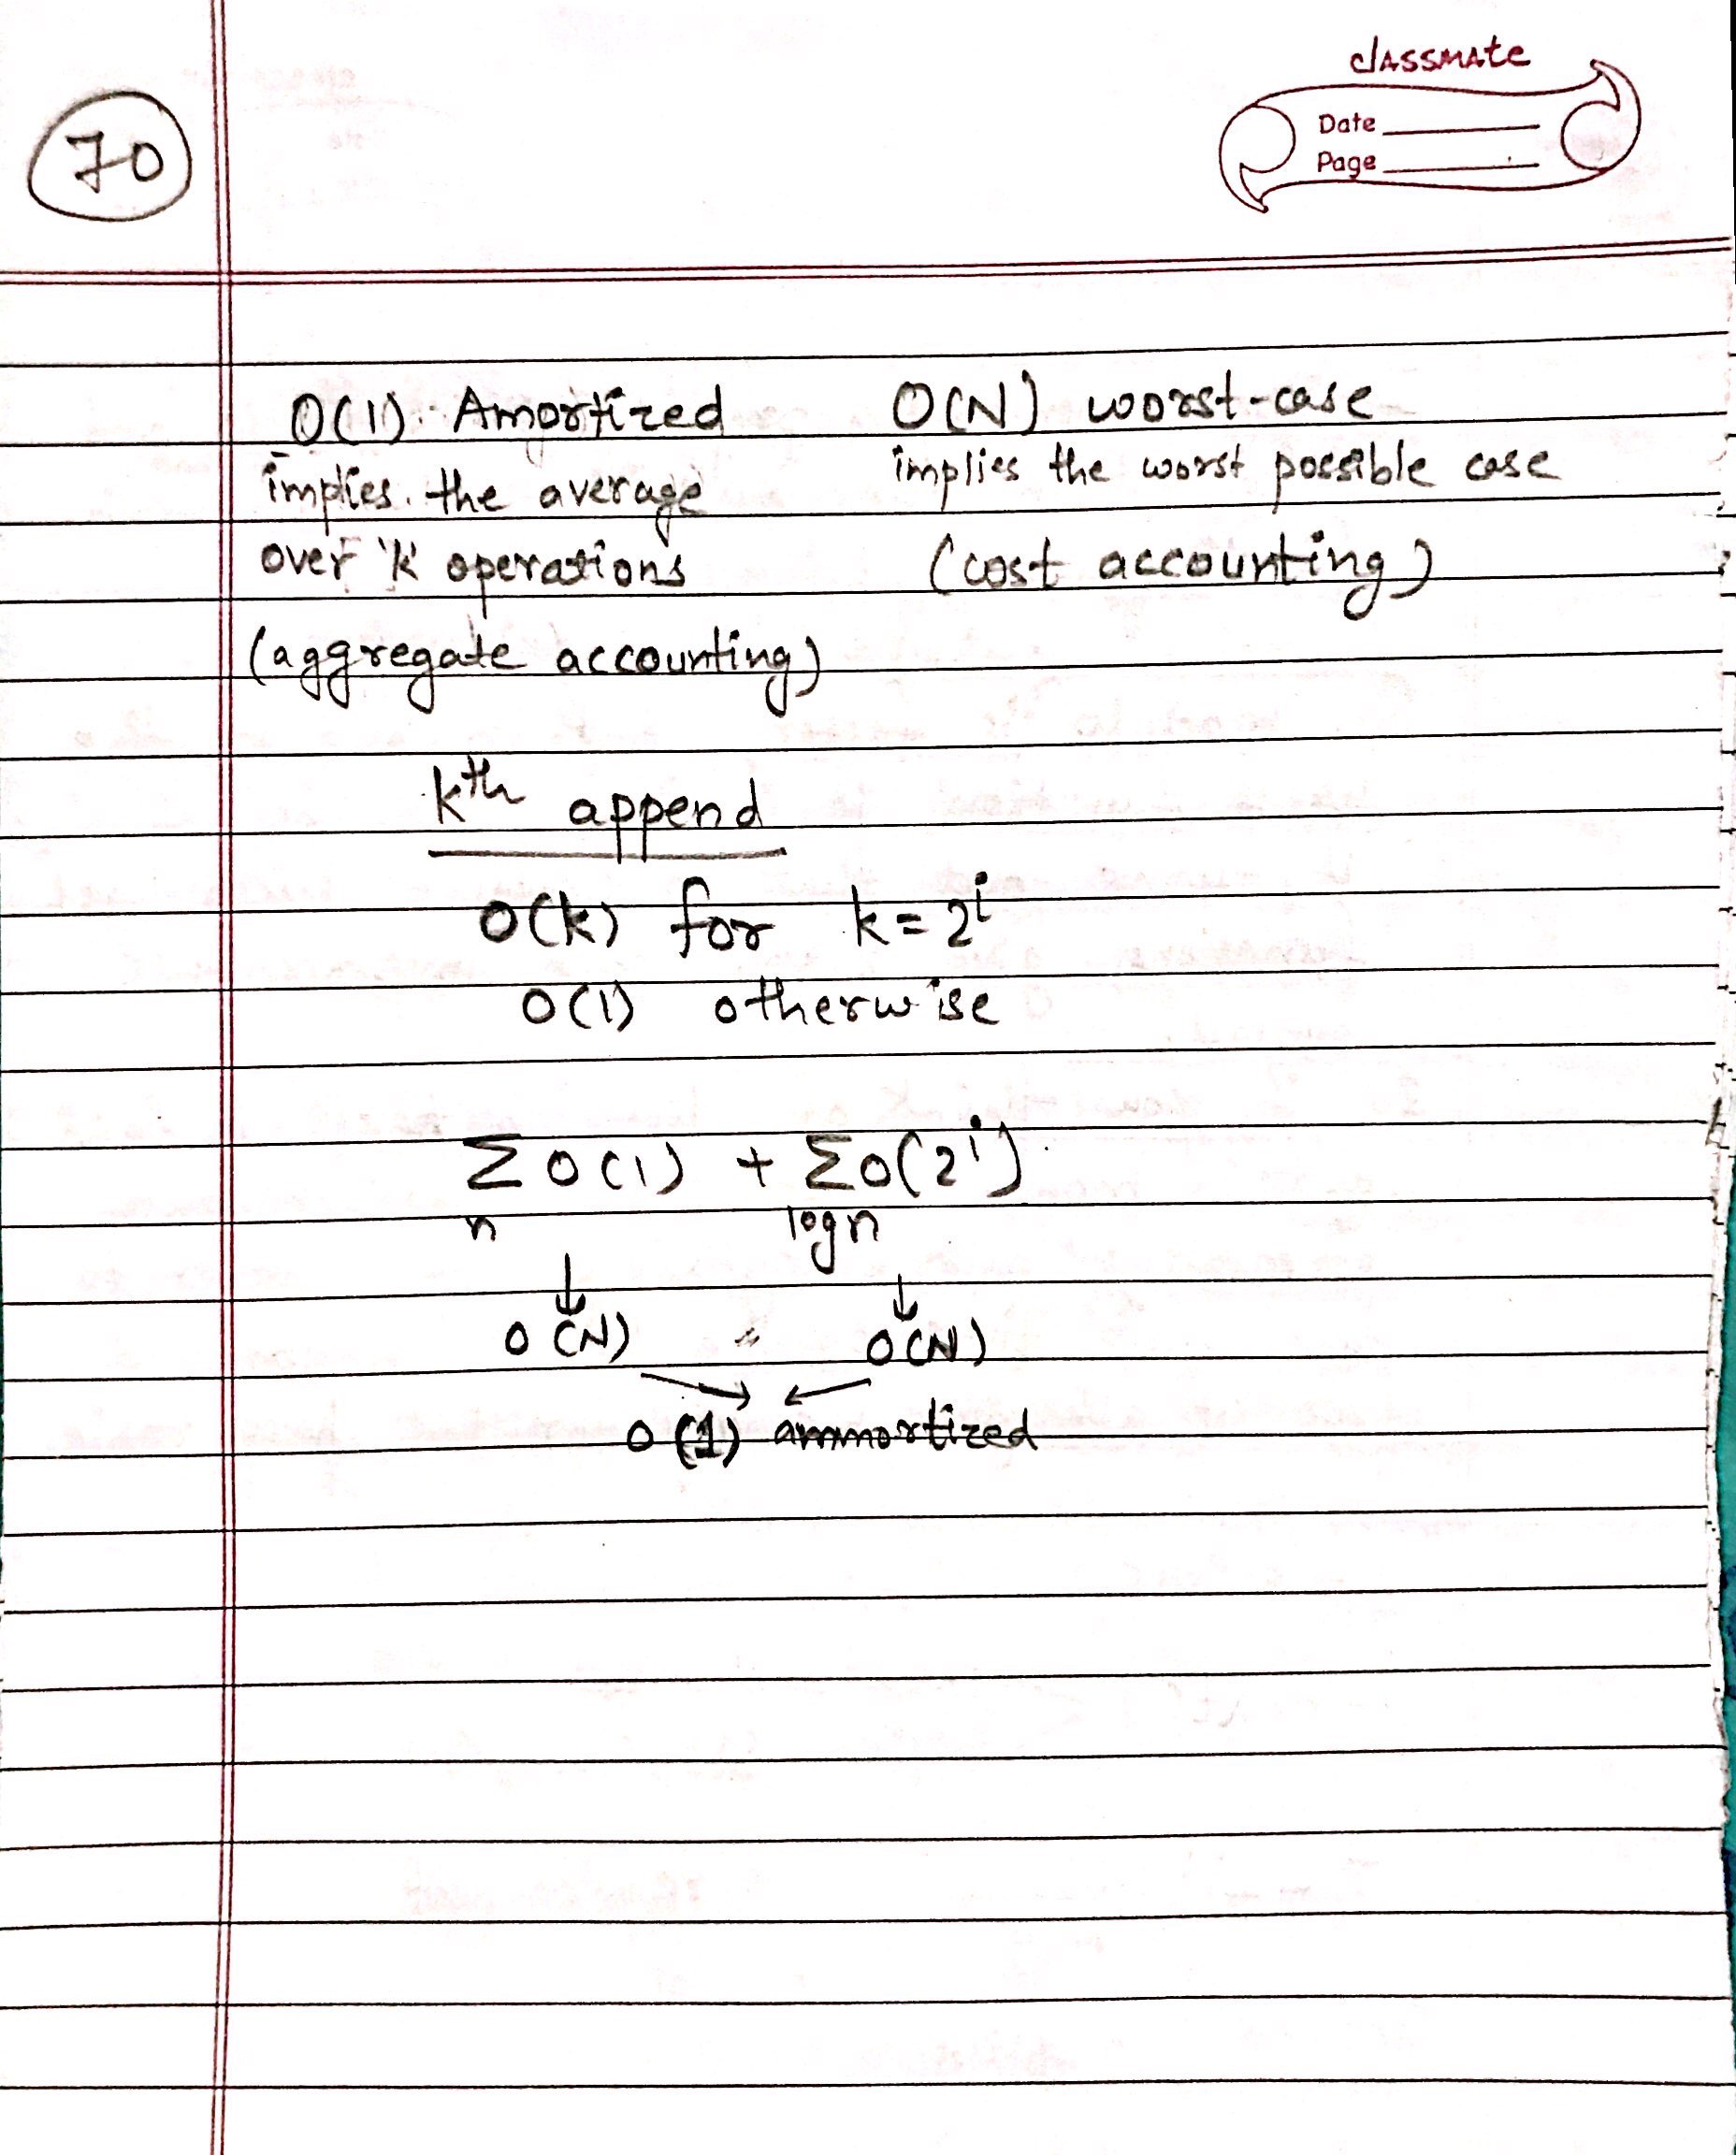 classmate
Date
Page
70
O(1) Amortized
implies the average
over 'k' operations
(aggregate accounting)
O(N) worst-case
implies the worst possible case
(cost accounting)
kth append
O(k) for k = 2^i
O(1) otherwise
Σ O(1) + Σ O(2^i)
n logn
↓ ↓
O(N) O(N)
O(1) ammortized